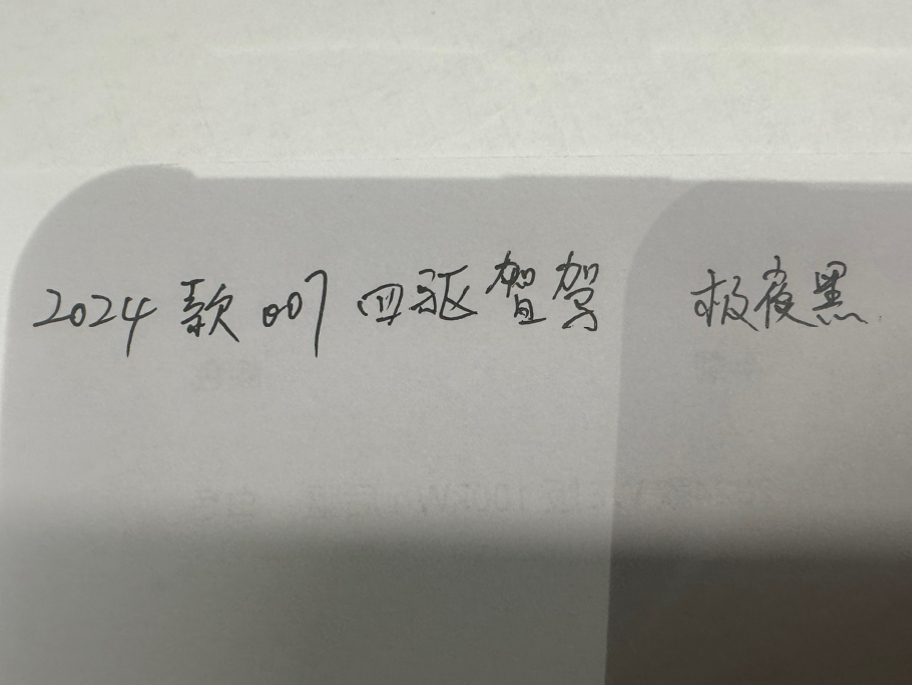 2024款007四驱智驾 极夜黑